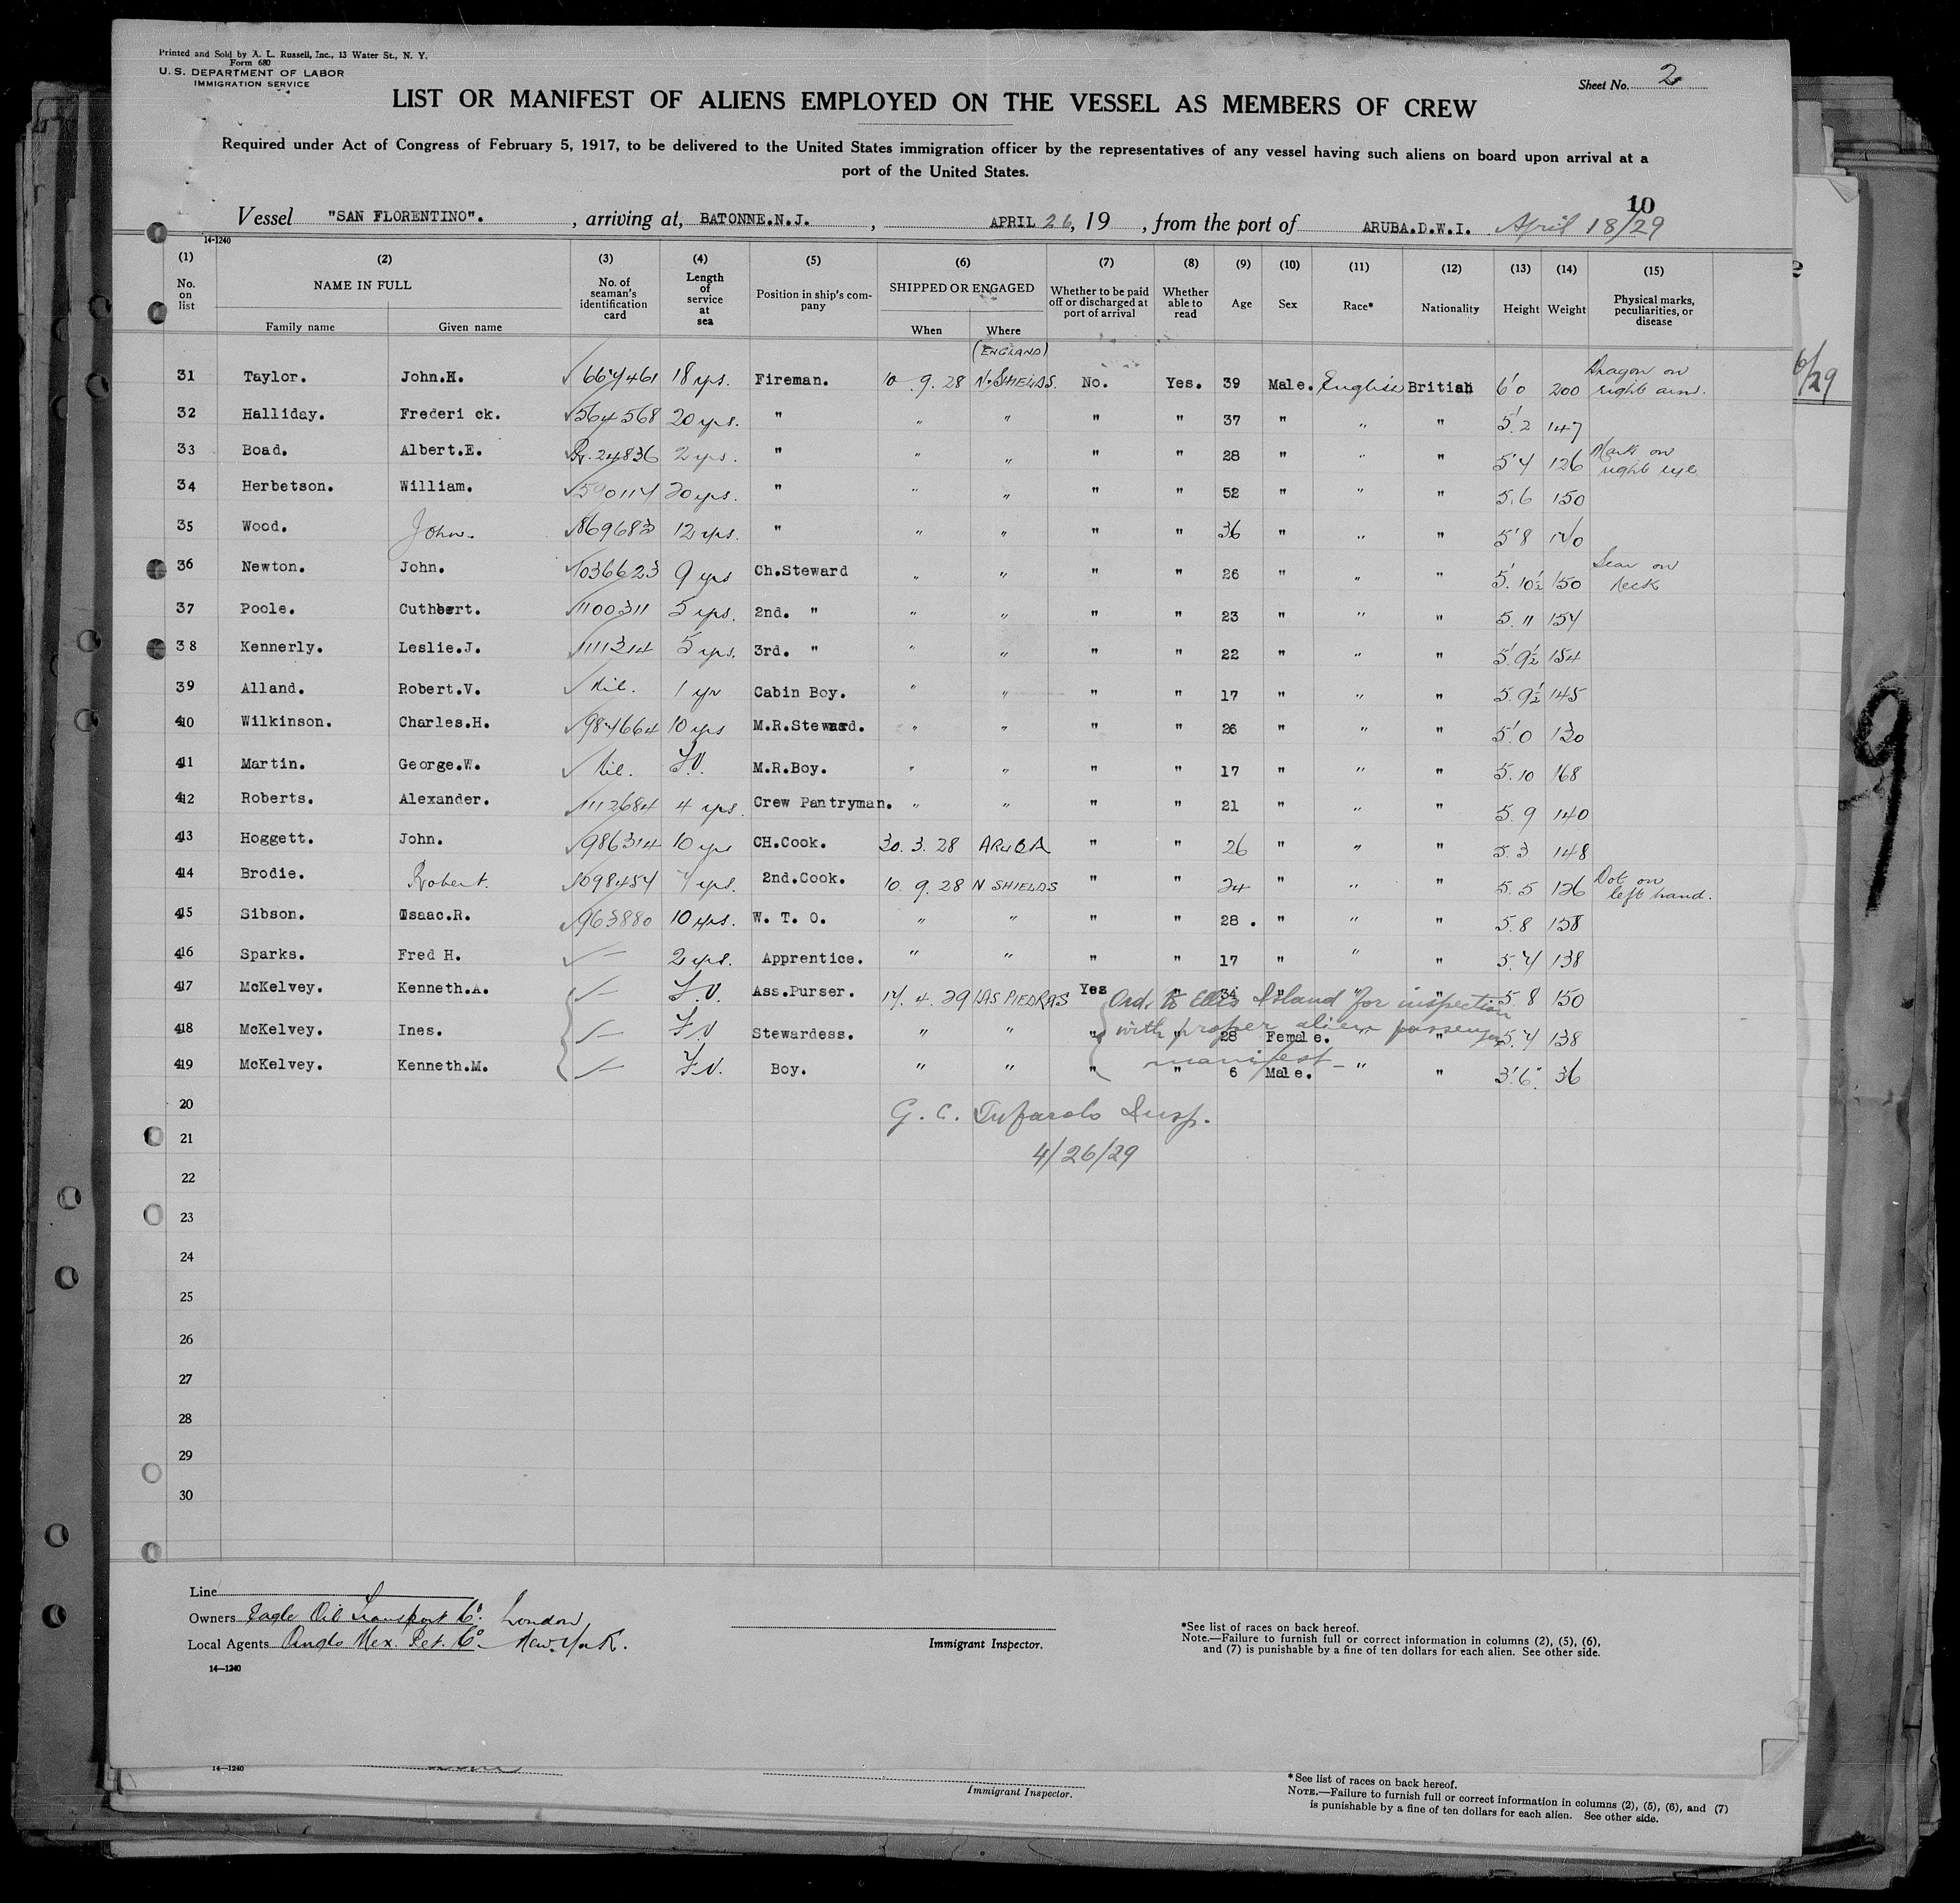 Printed and Sold by A. L. Russell, Inc., 13 Water St., N. Y.
Form 680
U. S. DEPARTMENT OF LABOR
IMMIGRATION SERVICE
Sheet No. 2
LIST OR MANIFEST OF ALIENS EMPLOYED ON THE VESSEL AS MEMBERS OF CREW
Required under Act of Congress of February 5, 1917, to be delivered to the United States immigration officer by the representatives of any vessel having such aliens on board upon arrival at a
port of the United States.
10
Vessel "SAN FLORENTINO". , arriving at, BATONNE.N.J. , APRIL 26, 19 , from the port of ARUBA.D.W.I. April 18/29
14-1240
(1) (2) (3) (4) (5) (6) (7) (8) (9) (10) (11) (12) (13) (14) (15)
No. on list NAME IN FULL Family name Given name No. of seaman's identification card Length of service at sea Position in ship's company SHIPPED OR ENGAGED When Where Whether to be paid off or discharged at port of arrival Whether able to read Age Sex Race* Nationality Height Weight Physical marks, peculiarities, or disease
(ENGLAND)
31 Taylor. John.H. 667461 18 yrs. Fireman. 10.9.28 N. SHIELDS. No. Yes. 39 Male. English British 6'0 200 Dragon on right arm.
32 Halliday. Frederi ck. 564568 20 yrs. " " " " " 37 " " " 5'.2 147
33 Boad. Albert.E. 24836 2 yrs. " " " " " 28 " " " 5'4 126 Mark on right eye
34 Herbetson. William. 590114 20 yrs. " " " " " 52 " " " 5.6 150
35 Wood. John. 869683 12 yrs. " " " " " 36 " " " 5'8 140
36 Newton. John. 1036623 9 yrs Ch.Steward " " " " 26 " " " 5'.10½ 150 Scar on neck
37 Poole. Cuthbert. 1100311 5 yrs. 2nd. " " " " " 23 " " " 5.11 154
38 Kennerly. Leslie.J. 1111314 5 yrs. 3rd. " " " " " 22 " " " 5'9½ 154
39 Alland. Robert.V. Nil. 1 yr Cabin Boy. " " " " 17 " " " 5.9½ 145
410 Wilkinson. Charles.H. 984664 10 yrs M.R.Steward. " " " " 26 " " " 5'.0 130
411 Martin. George.W. Nil. F.V. M.R.Boy. " " " " 17 " " " 5.10 168
412 Roberts. Alexander. 1112684 4 yrs. Crew Pantryman. " " " " 21 " " " 5.9 140
413 Hoggett. John. 986314 10 yrs CH.Cook. 30.3.28 ARUBA " " 26 " " " 5.3 148
414 Brodie. Robert. 1098454 4 yrs. 2nd.Cook. 10.9.28 N SHIELDS " " 24 " " " 5.5 126 Dot on left hand.
415 Sibson. Isaac.R. 963880 10 yrs. W. T. O. " " " " 28. " " " 5.8 158
416 Sparks. Fred H. — 2 yrs. Apprentice. " " " " 17 " " " 5.4 138
417 McKelvey. Kenneth.A. — F.V. Ass.Purser. 17.4.29 LAS PIEDRAS Yes " 34 " " " 5.8 150
418 McKelvey. Ines. — F.V Stewardess. " " " " 28 Female. " " 5.4 138
419 McKelvey. Kenneth.M. — F.V. Boy. " " " " 6 Male. " " 3'.6". 36
Ord. to Ellis Island for inspection
with proper alien passenger
manifest —
20
G. C. Insp.
21
4/26/29
22
23
24
25
26
27
28
29
30
Line
Owners Eagle Oil Transport Co. London
Local Agents Anglo Mex. Pet. Co. New York.
14—1240
Immigrant Inspector.
*See list of races on back hereof.
Note.—Failure to furnish full or correct information in columns (2), (5), (6),
and (7) is punishable by a fine of ten dollars for each alien. See other side.
14—1240
Immigrant Inspector.
*See list of races on back hereof.
NOTE.—Failure to furnish full or correct information in columns (2), (5), (6), and (7)
is punishable by a fine of ten dollars for each alien. See other side.
6/29
9